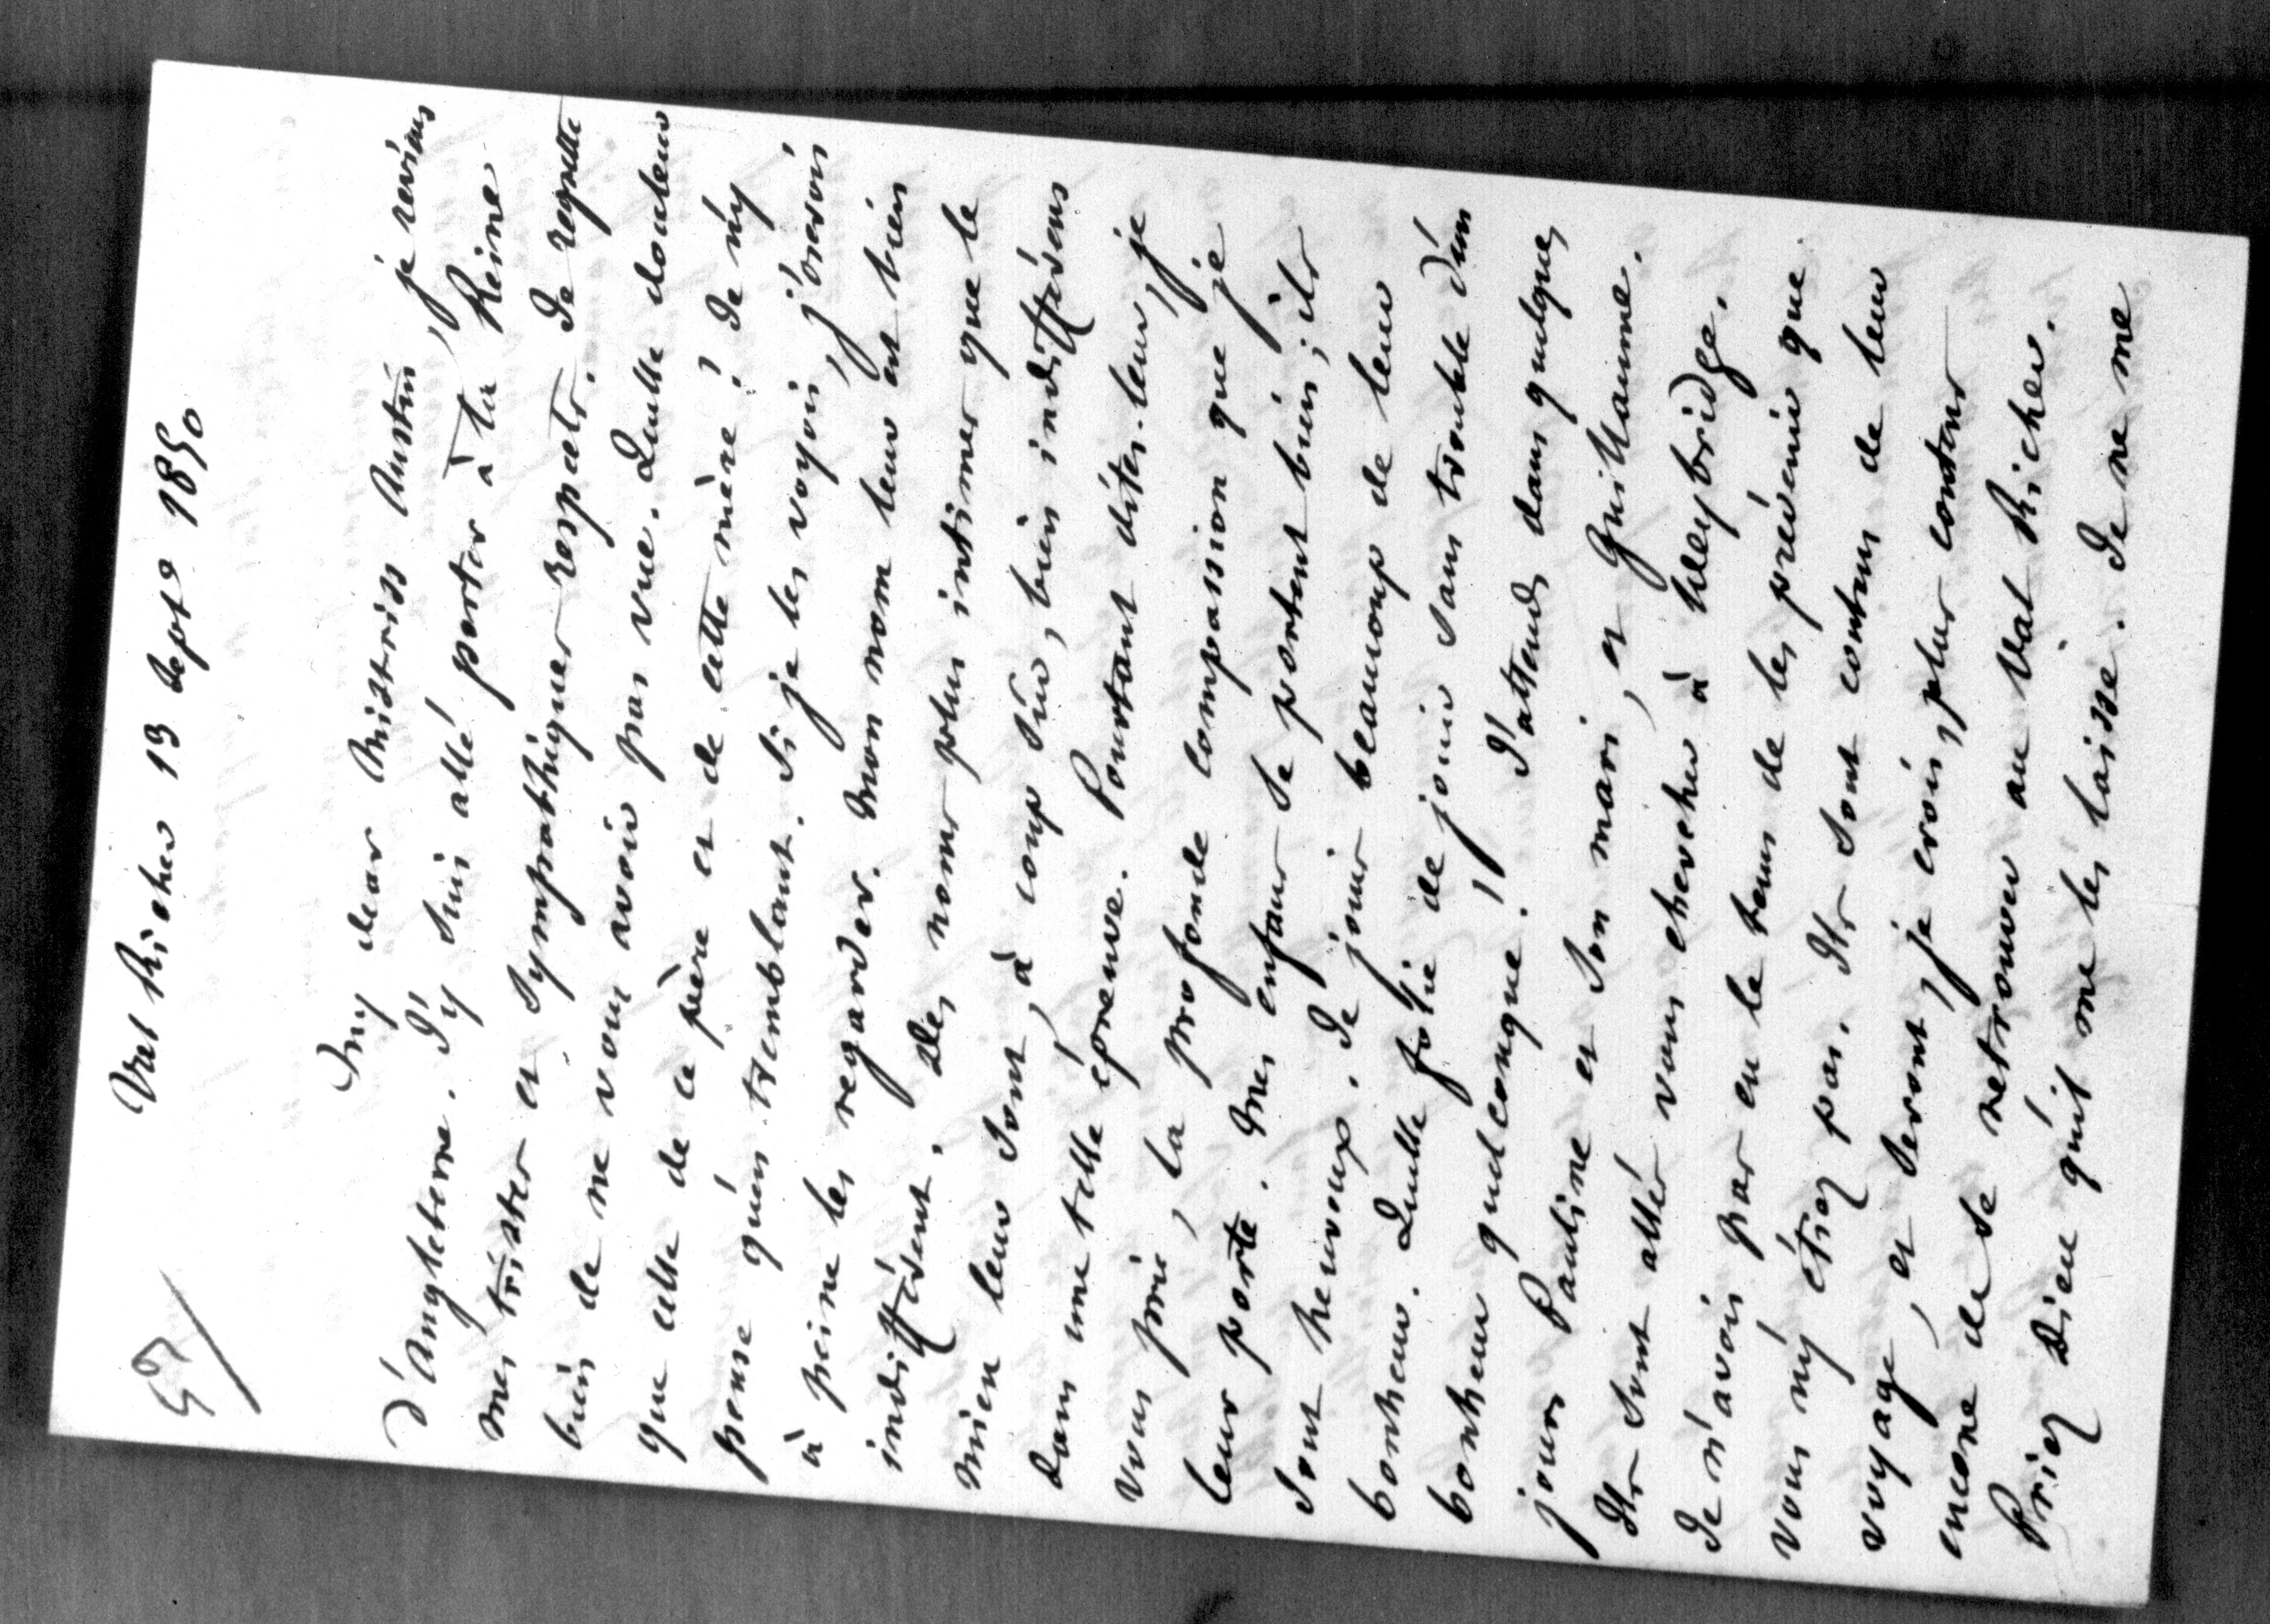 57
Val Richer 13 Sept. 1850
My dear Mistriss Austin, je reviens
d'Angleterre. J'y suis allé porter à la Reine
mes tristes et sympathiques respects. Je regrette
bien de ne vous avoir pas vue. Quelle douleur
que celle de ce père et de cette mère ! Je n'y
pense qu'en tremblant. Si je les voyois, j'oserois
à peine les regarder. Mon nom leur est bien
indifférent. Des noms plus intimes que le
mien leur sont, à coup sûr, bien indifférens
dans une telle épreuve. Pourtant dites-leur, je
vous prie, la profonde compassion que je
leur porte. Mes enfans se portent bien ; ils
sont heureux. Je jouis beaucoup de leur
bonheur. Quelle folie de jouir sans trouble d'un
bonheur quelconque ! J'attends dans quelques
jours Pauline et son mari, et Guillaume.
Ils sont allés vous chercher à Weybridge.
Je n'avois pas eu le tems de les prévenir que
vous n'y étiez pas. Ils sont contens de leur
voyage, et seront, je crois, plus contens
encore de se retrouver au Val Richer.
Priez Dieu qu'il me les laisse. Je ne me